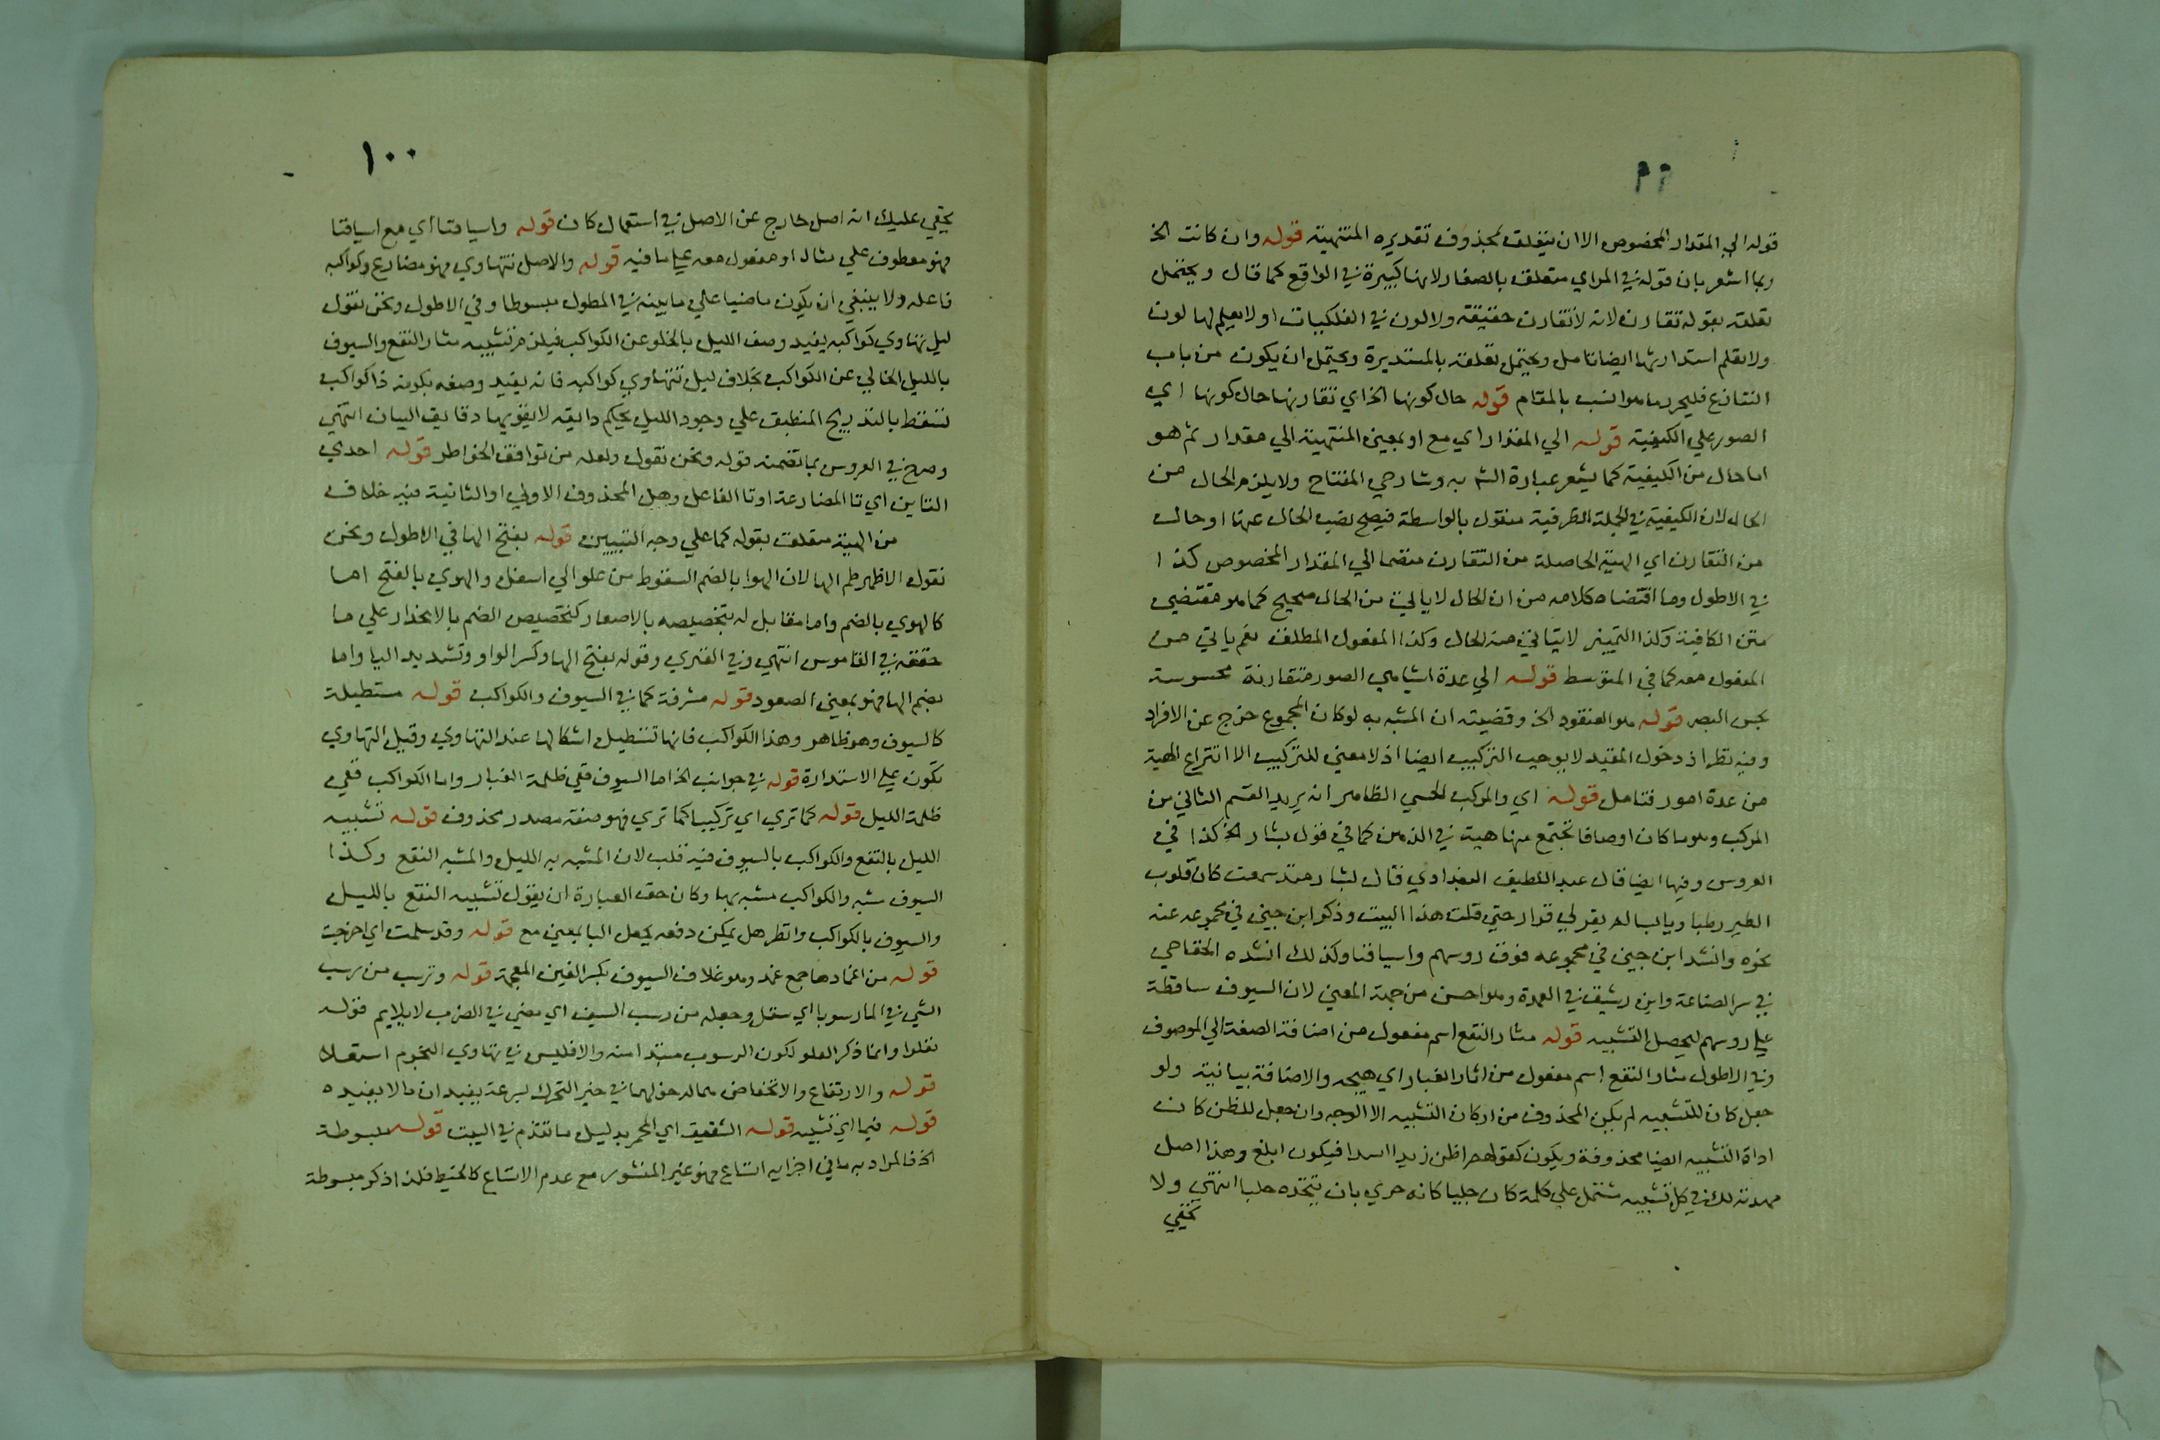 ٩٩
قوله الي المقدار المخصوص الا ان يتعلق بمحذوف تقديره المنتهية قوله وان كانت الخ
ربما اشعر بان قوله في المراي متعلق بالصغار لانها كبيرة في الواقع كما قال ويحتمل
تعلقه بقوله تقارن لانه لا تقارن حقيقة ولا لون في الفلكيات او لا يعلم لها لون
ولا يعلم استدارتها ايضا تامل ويحتمل تعلقه بالمستديرة ويحتمل ان يكون من باب
التنازع فليحرر ما هو انسب بالمقام قوله حال كونها الخ اي تقارنها حال كونها اي
الصور علي الكيفية قوله الي المقدار اي مع او بمعني المنتهية الي مقدار ثم هو
اما حال من الكيفية كما يشعر عبارة الش به وشارحي المفتاح ولا يلزم الحال من
الحال لان الكيفية في الجملة الظرفية مفعول بالواسطة فيصح نصب الحال عنها او حال
من التقارن اي الهيئة الحاصلة من التقارن منضما الي المقدار المخصوص كذا
في الاطول وما اقتضاه كلامه من ان الحال لا ياتي من الحال صحيح كما هو مقتضي
متن الكافية وكذا التمييز لا يتاتي منه الحال وكذا المفعول المطلق نعم ياتي من
المفعول معه كما في المتوسط قوله الي عدة اشيا هي الصور متقارنة محسوسة
بحس البصر قوله هو العنقود الخ وقضيته ان المشبه به لو كان المجموع خرج عن الافراد
وفيه نظر اذ دخول المقيد لا يوجب التركيب ايضا اذ لا معني للتركيب الا انتزاع الهيئة
من عدة امور فتامل قوله اي والمركب الحسي الظاهر انه يريد القسم الثاني من
المركب وهو ما كان اوصافا تجتمع منها هيئة في الذهن كما في قول بشار الخ كذا في
العروس وفيها ايضا قال عبد اللطيف البغدادي قال بشار منذ سمعت كان قلوب
الطير رطبا ويابسا لم يقر لي قرار حتي قلت هذا البيت وذكر ابن جني في مجموعه عنه
نحوه وانشد ابن جني في مجموعه فوق روسهم واسيافنا وكذلك انشده الخفاجي
في سر الصناعة وابن رشيق في العمدة وهو احسن من جهة المعني لان السيوف ساقطة
علي روسهم ليحصل التشبيه قوله مثار النقع اسم مفعول من اضافة الصفة الي الموصوف
وفي الاطول مثار النقع اسم مفعول من اثار الغبار اي هيجه والاضافة بيانية ولو
جعل كان للتشبيه لم يكن المحذوف من اركان التشبيه الا الوجه وان جعل للظن كان
اداة التشبيه ايضا محذوفة ويكون كقولهم اظن زيدا اسدا فيكون ابلغ وهذا اصل
مهدته لك في كل تشبيه مشتمل علي كلمة كان جليا كانه حري بان يتخذه حليا انتهي ولا
يخفي
١٠٠
يخفي عليك انه اصل خارج عن الاصل في استعمال كان قوله واسيافنا اي مع اسيافنا
فهو معطوف علي مثار او مفعول معه علي ما فيه قوله والاصل تتهاوي فهو مضارع وكواكبه
فاعله ولا ينبغي ان يكون ماضيا علي ما بينه في المطول مبسوطا وفي الاطول ونحن نقول
ليل تهاوي كواكبه يفيد وصف الليل بالخلو عن الكواكب فيلزم تشبيه مثار النقع والسيوف
بالليل الخالي عن الكواكب بخلاف ليل تتهاوي كواكبه فانه يفيد وصفه بكونه ذا كواكب
تسقط بالتدريج المنطبق علي وجود الليل بحكم دابقه لا يقويها دقايق البيان انتهي
وصرح في العروس بما تضمنه قوله ونحن نقول ولعله من توافق الخواطر قوله احدي
التاين اي تا المضارعة او تا الفاعل وهل المحذوف الاولي او الثانية فيه خلاف
من الهيئة متعلق بقوله كما علي وجه التبيين قوله بفتح الها في الاطول ونحن
نقول الاظهر ضم الها لان الهوا بالضم السقوط من علو الي اسفل والهوي بالفتح اما
كالهوي بالضم واما مقابل له بتخصيصه بالاصعاد كتخصيص الضم بالانحدار علي ما
حققه في القاموس انتهي وفي الفنري وقوله بفتح الها وكسر الواو وتشديد اليا واما
بضم الها فهو بمعني الصعود قوله مشرقة كما في السيوف والكواكب قوله مستطيلة
كالسيوف وهو ظاهر وهذا الكواكب فانها تستطيل اشكالها عند التهاوي وقبل التهاوي
تكون علي الاستدارة قوله في جوانب الخ اما السيوف ففي ظلمة الغبار واما الكواكب ففي
ظلمة الليل قوله كما تري اي تركيبا كما تري فهو صفة مصدر محذوف قوله تشبيه
الليل بالنقع والكواكب بالسيوف فيه قلب لان المشبه به الليل والمشبه النقع وكذا
السيوف مشبه والكواكب مشبه بها وكان حق العبارة ان يقول تشبيه النقع بالليل
والسيوف بالكواكب وانظر هل يمكن دفعه بجعل البا بمعني مع قوله وقد سلت اي اخرجت
قوله من اغمادها جمع غمد وهو غلاف السيوف بكسر الغين المعجمة قوله وترسب من رسب
الشي في الما رسوبا اي سفل وجعله من رسب السيف اي مضي في الضرب لا يلايم قوله
تعلوا وانما ذكر العلو لكون الرسوب مبتدا منه والا فليس في تهاوي النجوم استعلا
قوله والارتفاع والانخفاض مما لا دخل لهما في حيز التحرك لسرعة يفيد ان ما لا يفيده
قوله فيما اي تشبيه قوله الشقيق اي المحمر بدليل ما تقدم في البيت قوله مبسوطة
الخ فالمراد به ما في اجزايه اتساع فهو غير المنشور مع عدم الاتساع كالخيط فلذا ذكر مبسوطة